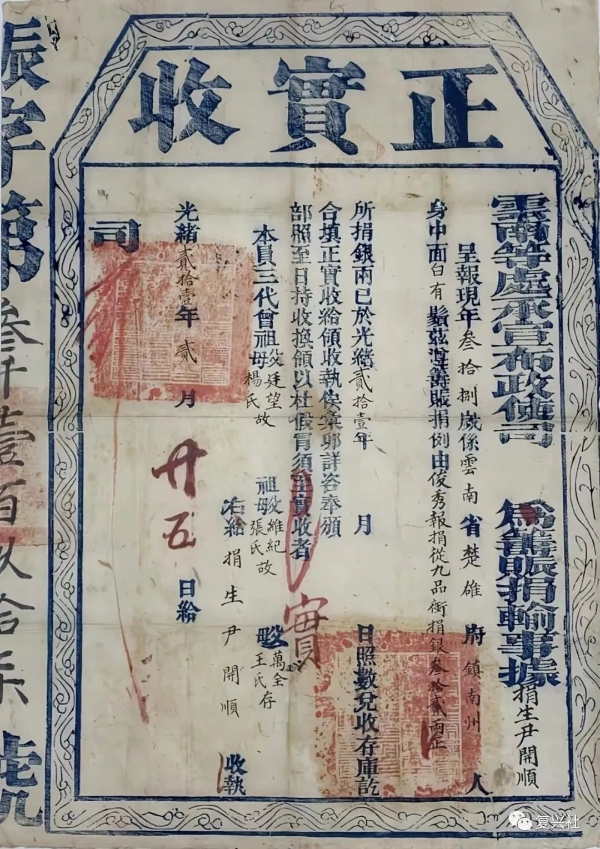 正實收
雲南等處承宣布政使司 為籌賑捐輸事據捐生尹開順
呈報現年叁拾捌歲係雲南省楚雄府鎮南州人
身中面白有鬚茲遵籌賑捐例由俊秀報捐從九品銜捐銀叁拾貳兩正
所捐銀兩已於光緒貳拾壹年 月 日照數兌收存庫訖
合填正實收給領收執俟彙詳咨奉頒
部照至日持收換領以杜假冒須至實收者
實
本員三代曾祖父廷望故 母楊氏 祖父維紀 母張氏故 父萬全 母王氏存
右給捐生尹開順 收執
光緒貳拾壹年貳月廿五日給
司
賑字第叁仟壹百拾柒號
复兴社